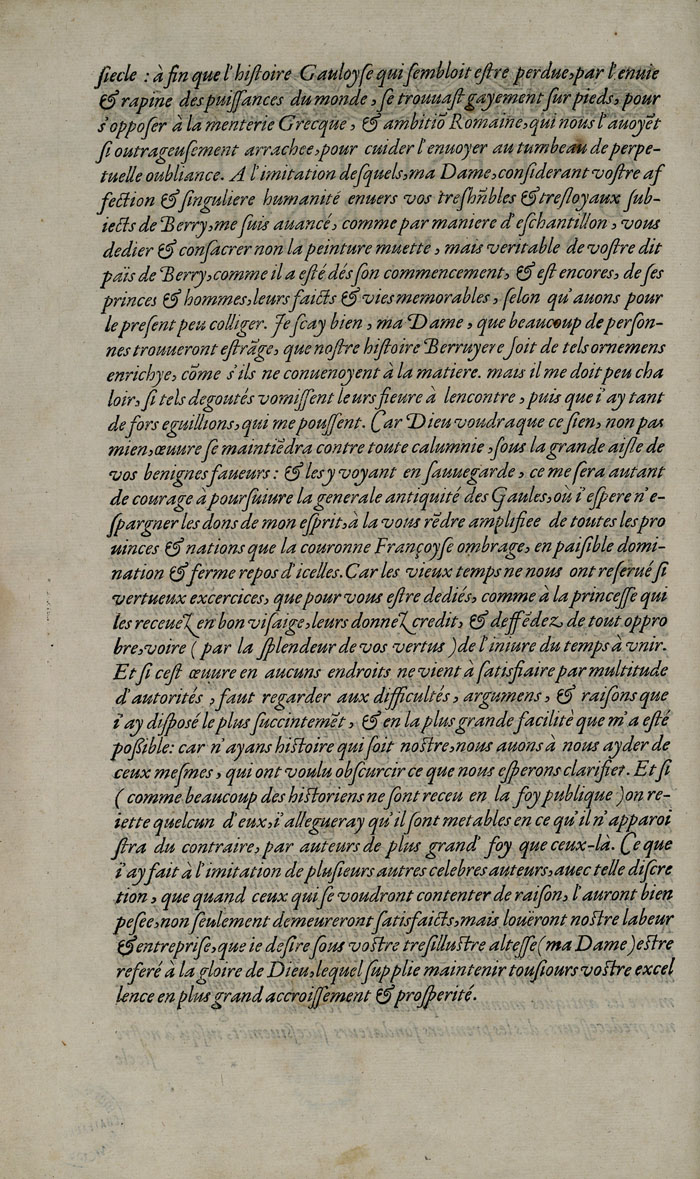 ſiecle : à fin que l'hiſtoire Gauloyſe qui ſembloit eſtre perdue, par l'enuie
& rapine des puiſſances du monde, ſe trouuaſt gayement ſur pieds, pour
s'oppoſer à la menterie Grecque, & ambitiõ Romaine, qui nous l'auoyẽt
ſi outrageuſement arrachee, pour cuider l'enuoyer au tumbeau de perpe-
tuelle oubliance. A l'imitation deſquels, ma Dame, conſiderant voſtre af
fection & ſinguliere humanité enuers vos treſhũbles & treſloyaux ſub-
iects de Berry, me ſuis auancé, comme par maniere d'eſchantillon, vous
dedier & conſacrer non la peinture muette, mais veritable de voſtre dit
païs de Berry, comme il a eſté dés ſon commencement, & eſt encores, de ſes
princes & hommes, leurs faicts & vies memorables, ſelon qu'auons pour
le preſent peu colliger. Je ſcay bien, ma Dame, que beaucoup de perſon-
nes trouueront eſtrãge, que noſtre hiſtoire Berruyere ſoit de tels ornemens
enrichye, cõme s'ils ne conuenoyent à la matiere. mais il me doit peu cha
loir, ſi tels degoutés vomiſſent leurs fieure à lencontre, puis que i'ay tant
de fors eguillions, qui me pouſſent. Car Dieu voudra que ce ſien, non pas
mien, œuure ſe maintiẽdra contre toute calumnie, ſous la grande aiſle de
vos benignes faueurs : & les y voyant en ſauuegarde, ce me ſera autant
de courage à pourſuiure la generale antiquité des Gaules, où i'eſpere n'e-
ſpargner les dons de mon eſprit, à la vous rẽdre amplifiee de toutes les pro
uinces & nations que la couronne Françoyſe ombrage, en paiſible domi-
nation & ferme repos d'icelles. Car les vieux temps ne nous ont reſerué ſi
vertueux excercices, que pour vous eſtre dediés, comme à la princeſſe qui
les receuez en bon viſaige, leurs donnez credit, & deffẽdez de tout oppro
bre, voire ( par la ſplendeur de vos vertus ) de l'iniure du temps à vnir.
Et ſi ceſt œuure en aucuns endroits ne vient à ſatiſfiaire par multitude
d'autorités, faut regarder aux difficultés, argumens, & raiſons que
i'ay diſpoſé le plus ſuccintemẽt, & en la plus grande facilité que m'a eſté
poſſible : car n'ayans hiſtoire qui ſoit noſtre, nous auons à nous ayder de
ceux meſmes, qui ont voulu obſcurcir ce que nous eſperons clarifier. Et ſi
( comme beaucoup des hiſtoriens ne ſont receu en la foy publique ) on re-
iette quelcun d'eux, i'allegueray qu'il ſont metables en ce qu'il n'apparoi
ſtra du contraire, par auteurs de plus grand' foy que ceux-là. Ce que
i'ay fait à l'imitation de pluſieurs autres celebres auteurs, auec telle diſcre
tion, que quand ceux qui ſe voudront contenter de raiſon, l'auront bien
peſee, non ſeulement demeureront ſatisfaicts, mais louëront noſtre labeur
& entrepriſe, que ie deſire ſous voſtre treſilluſtre alteſſe ( ma Dame ) eſtre
referé à la gloire de Dieu, lequel ſupplie maintenir touſiours voſtre excel
lence en plus grand accroiſſement & proſperité.